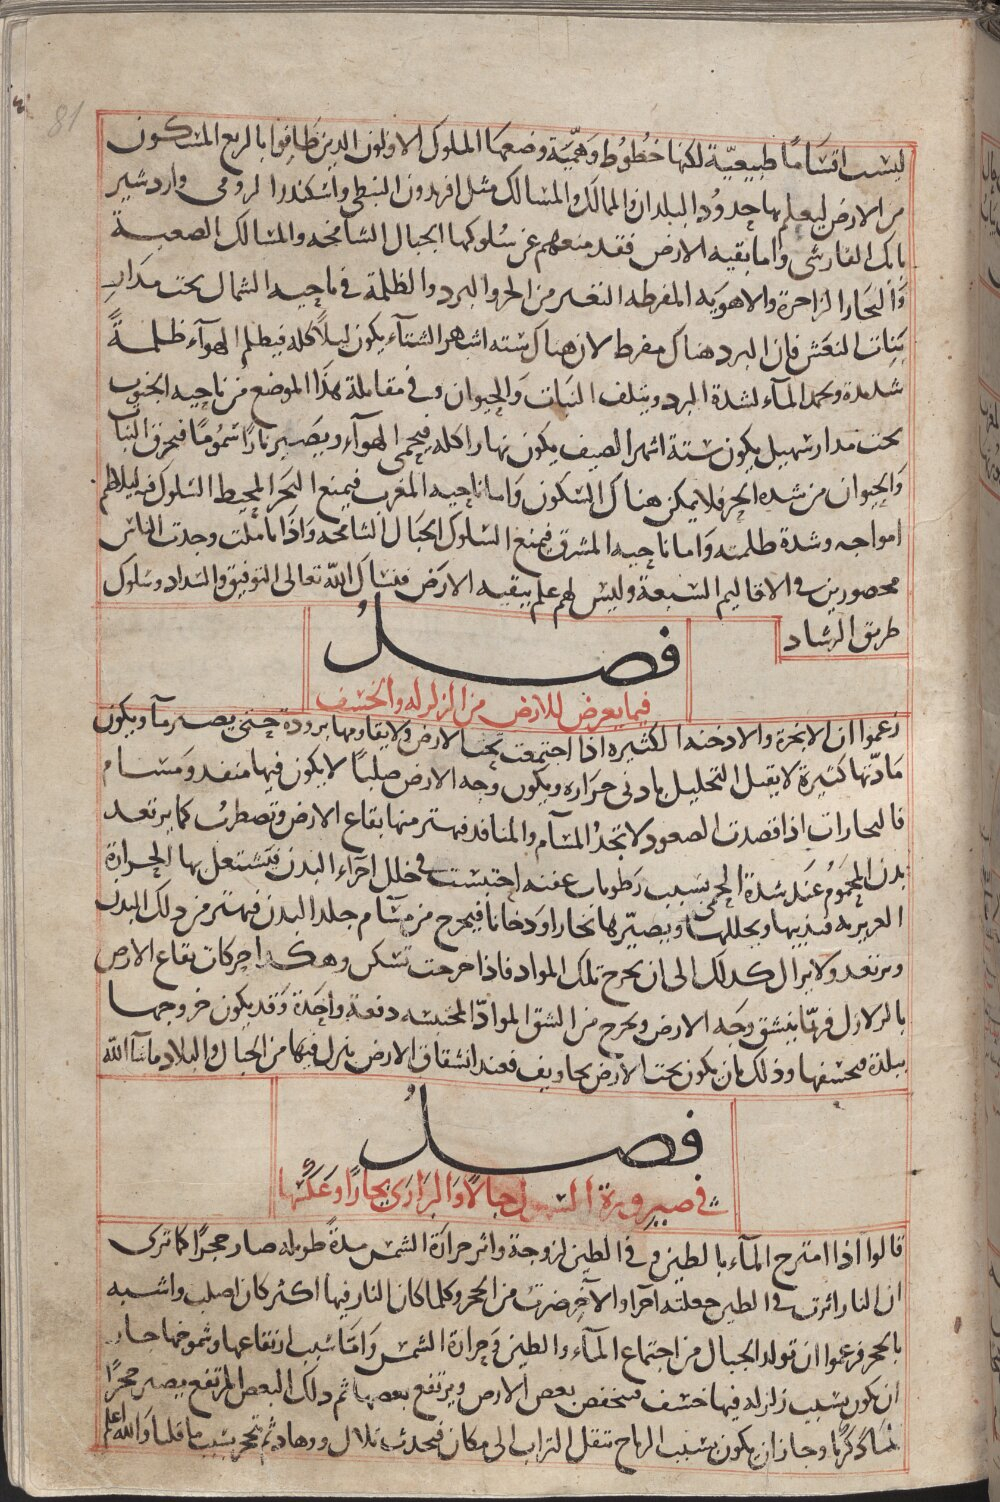 81
ليست اقسامًا طبيعيّة لكنها خُطُوط وَهميّة وضعها الملوك الاولون الذين طافوا بالربع المسكون
من الارض ليعلم بها حدود البلدان والممالك والمسالك مثل افريدون النبطى واسكندر الرومى واردشير
بابك الفارسى واما بقيه الارض فقد منعهم عن سلوكها الجبال الشامخه والمسالك الصعبة
وَالبحار الزاخرة والاهويه المفرطه التغير من الحر والبرد والظلمة فى ناحيه الشمال تحت مدار
بنات النعش فان البرد هناك مفرط لان هناك سته اشهر الشتآء يكون ليلًا كله فيظلم الهوآء ظلمةً
شديدة ويجمد المآء لشدة البرد ويتلف النبات وَالحيوان وفى مقابلة هذا الموضع من ناحيه الجنوب
تحت مدار سهيل يكون ستة اشهر الصيف يكون نهارا كله فيحمى الهوآء ويصير نارًا سمومًا فيحرق النبات
وَالحيوان من شده الحر فلا يمكن هناك السكون وَاما ناحيه المغرب فيمنع البحر المحيط السلوك فيه لتلاطم
امواجه وشدة ظلمته وَاما ناحيه المشرق فيمنع السلوك الجبال الشامخه وَاذا تأملت وجدت الناس
محصورين فى الاقاليم السبعة وليس لهم علم ببقيه الارض فنسال الله تعالى التوفيق والسداد وسلوك
طريق الرشاد
فصل
فيما يعرض للارض من الزلزله والخسف
زعموا ان الابخرة والادخنه الكثيره اذا اجتمعت تحت الارض ولا يقاومها برودة حتى يصير مآء ويكون
مادّتها كثيرة لا يقبل التحليل بادنى حراره ويكون وجه الارض صلبًا لا يكون فيها منفذ ومسام
فالبخارات اذا قصدت الصعود لا تجدُ المسام والمنافذ فيهتز منها بقاع الارض وتضطرب كما يرتعد
بدن المحموم عند شدة الحمى بسبب رطوبات عفنه احتبست فى خلل اجزاء البدن فتشتعل بها الحرارة
الغريزيه فتذيبها ويحللها ويصيّرها بخارا ودخانا فيخرج من مسام جلد البدن فيهتز من ذلك البدن
ويرتعد ولا يزال كذلك الى ان يخرج تلك المواد فاذا خرجت تسكن وهكذا حركات بقاع الارض
بالزلازل فربّما ينشق وجه الارض ويخرج من الشق الموادّ المحتبسه دفعة واحدة وقد يكون خروجها
ببلدة فيخسفها وذلك بان يكون تحت الارض تجاويف فعند انشقاق الارض ينزل فيها من الجبال والبلاد ما شآ الله
فصل
فى صيرورة السهول جبالًا وَالبرارى بحارًا وعكسُها
قالوا اذا امتزج المآء بالطين وفى الطين لزوجة واثر حرارة الشمس مدةً طويله صار حجرًا كما ترى
ان النار اثرت فى الطين جعلته آجرا والآجر ضرب من الحجر وكلما كان النار فيها اكثر كان اصلب واشبه
بالحجر فزعموا ان تولد الجبال من اجتماع المآء والطين وحرارة الشمس وَامّا سبب ارتفاعها وشموخها جاز
ان يكون بسبب زلزله فيها خسف فيخفض بعض الارض ويرتفع بعضها ثم ذلك البعض المرتفع يصير حجرًا
لما ذكرنا وجاز ان يكون بسبب الرياح تنقل التراب الى مكان فيحدث تلال ووهاد ثم تحجر بسبب ما قلنا وَالله اعلم